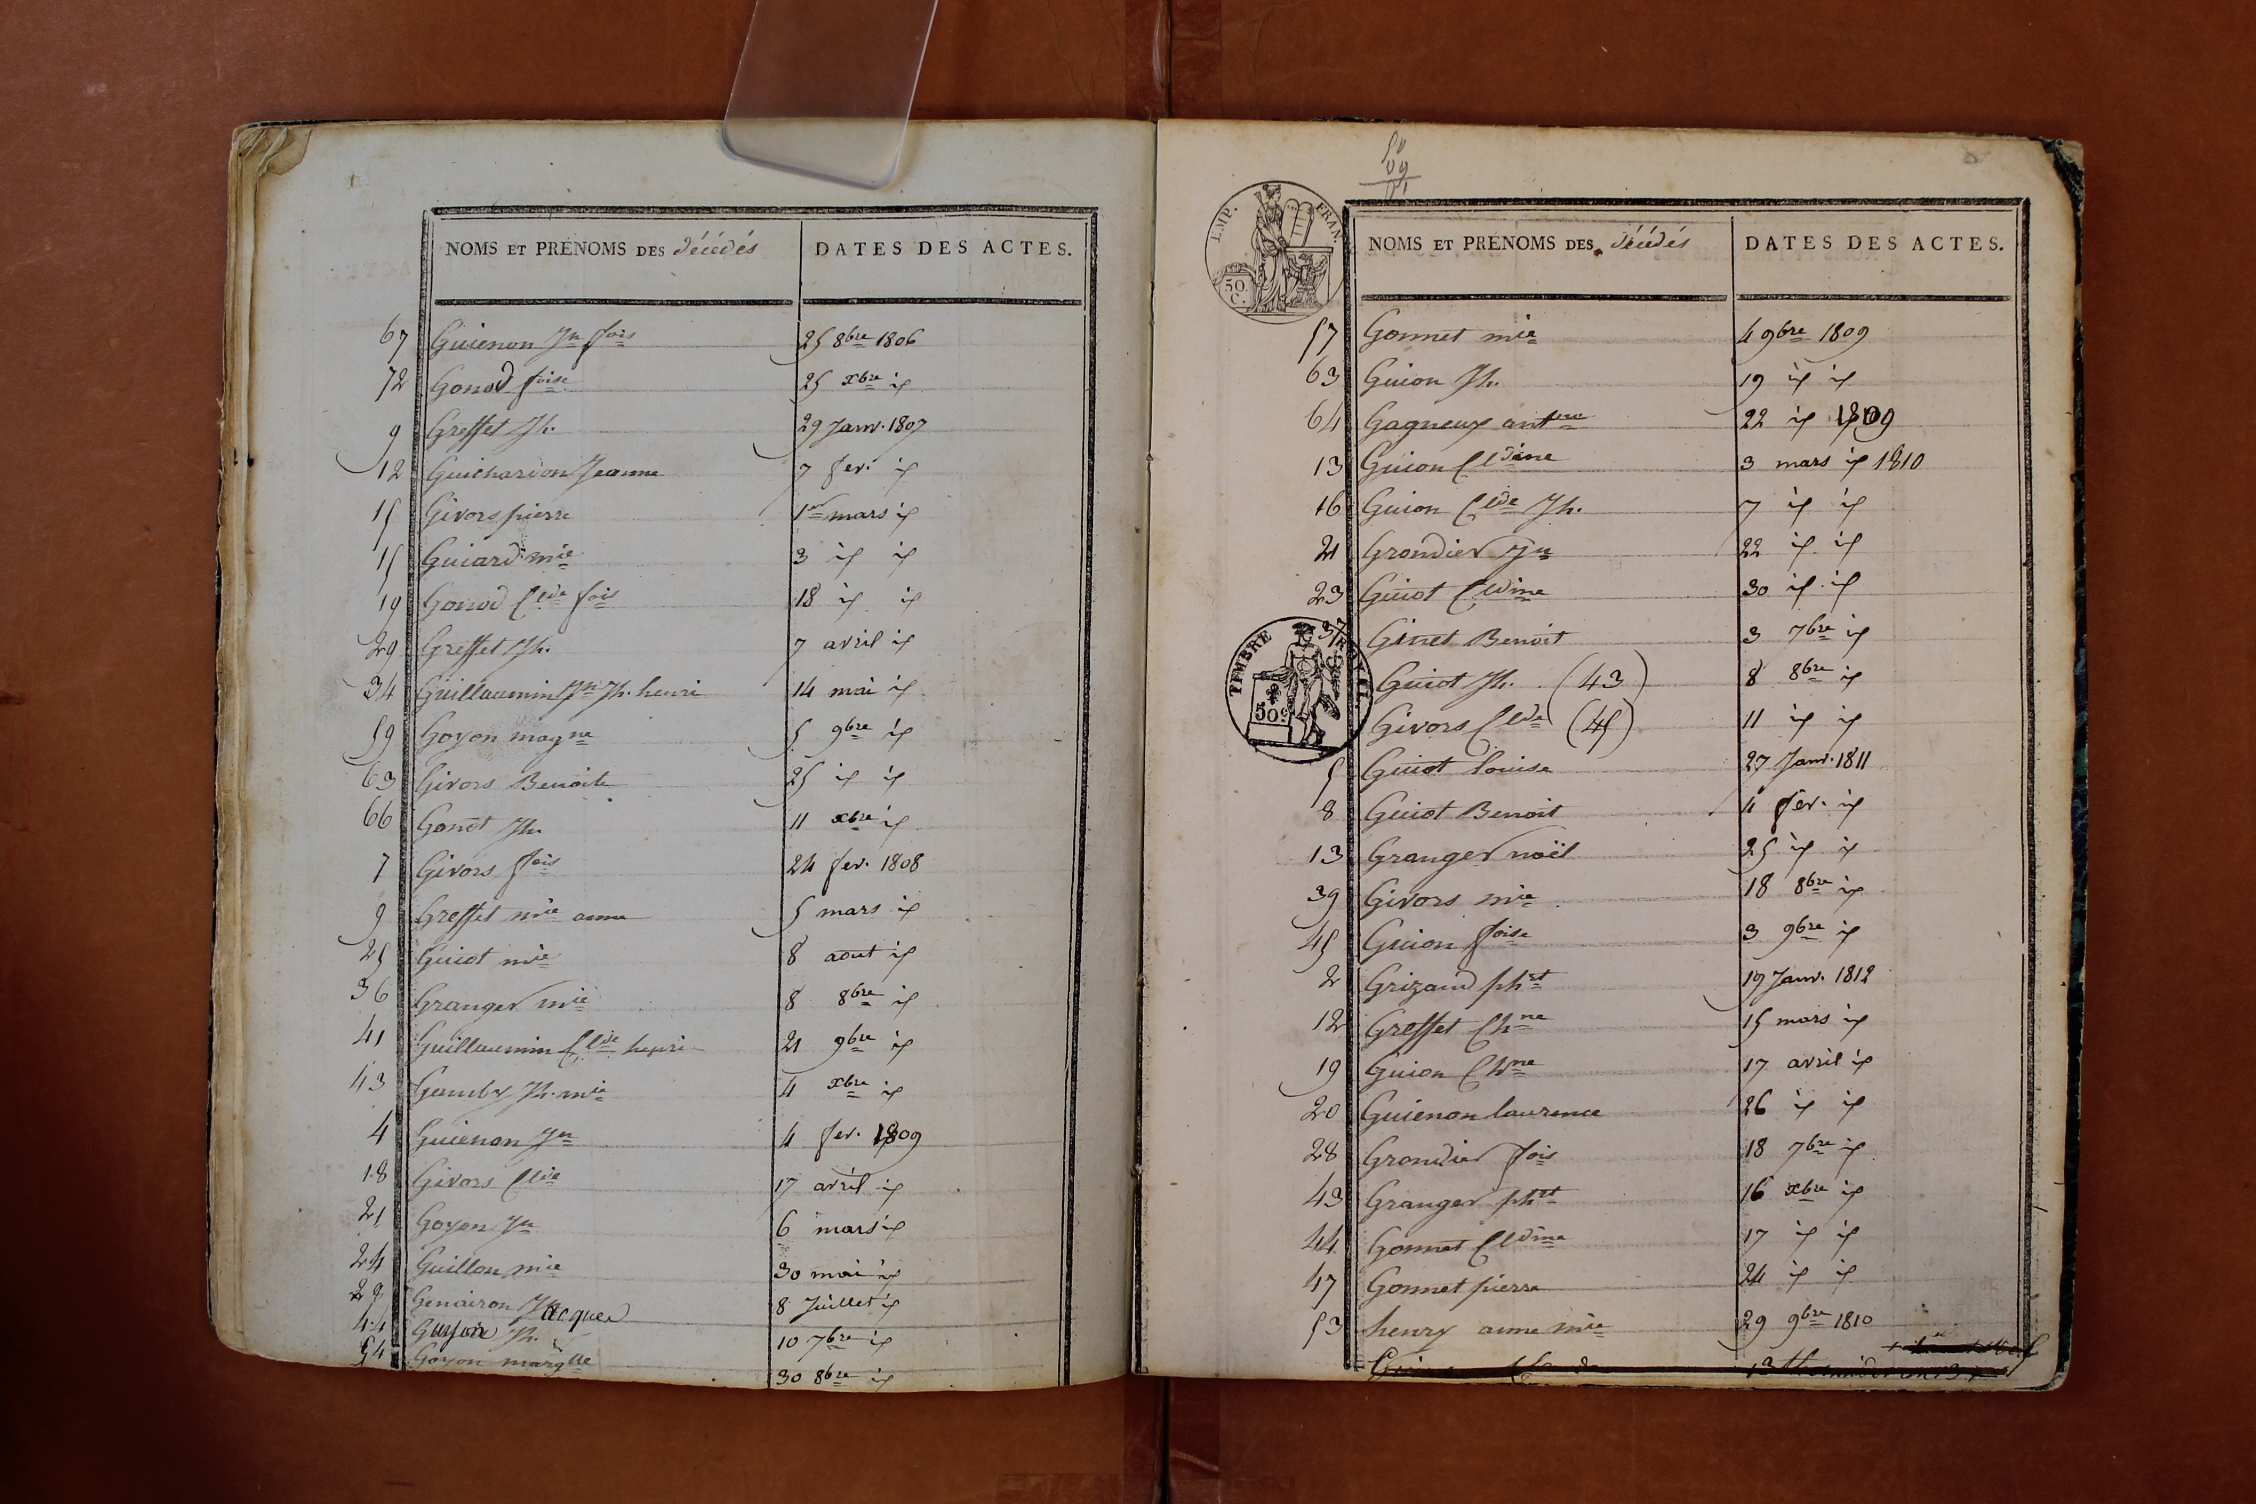 NOMS ET PRÉNOMS DES décédés DATES DES ACTES.
67 Guienon Jn fois 25 8bre 1806
72 Gonod foise 25 xbre id
9 Greffet Jh. 29 Janv. 1807
12 Guichardon Jeanne 7 fev. id
15 Givors pierre 1er mars id
15 Guiard mie 3 id id
19 Gonod Clde fois 18 id id
29 Greffet Jh. 7 avril id
34 Guillaumin Jn Jh. henri 14 mai id
59 Goyon magne 5 9bre id
63 Givors Benoite 25 id id
66 Gonot Jh. 11 xbre id
7 Givors fois 24 fev. 1808
9 Greffet mie anne 5 mars id
25 Guiot mie 8 aout id
36 Granger mie 8 8bre id
41 Guillaumin Clde henri 21 9bre id
43 Jh. mie 4 xbre id
4 Guienon Jn 4 fev. 1809
18 Givors Clde 17 avril id
21 Goyon Jn 6 mars id
24 Guillon mie 30 mai id
29 Genairon Jacques 8 Juillet id
44 Guyon Jh. 10 7bre id
54 Goyon margtte 30 8bre id
IMP. FRAN.
50 C.
NOMS ET PRÉNOMS DES décédés DATES DES ACTES.
57 Gonnet mie 4 9bre 1809
63 Guion Jh. 19 id id
64 Gagneux antne 22 id 1809
13 Guion Cldine 3 mars id 1810
16 Guion Clde Jh. 7 id id
21 Grondier Jn 22 id id
23 Guiot Cldine 30 id id
37 Ginet Benoit 3 7bre id
TIMBRE ROYAL
50c
Guiot Jh. (43) 8 8bre id
Givors Clde (45) 11 id id
5 Guiot louise 27 Janv. 1811
8 Guiot Benoit 4 fév. id
13 Granger noël 25 id id
39 Givors mie 18 8bre id
45 Guion foise 3 9bre id
2 Grizaud phrt 19 Janv. 1812
12 Greffet Chne 15 mars id
19 Guion Chne 17 avril id
20 Guienon laurence 26 id id
28 Grondier fois 18 7bre id
43 Granger phrt 16 xbre id
44 Gonnet Cldine 17 id id
47 Gonnet pierre 24 id id
53 henry anne mie 29 9bre 1810